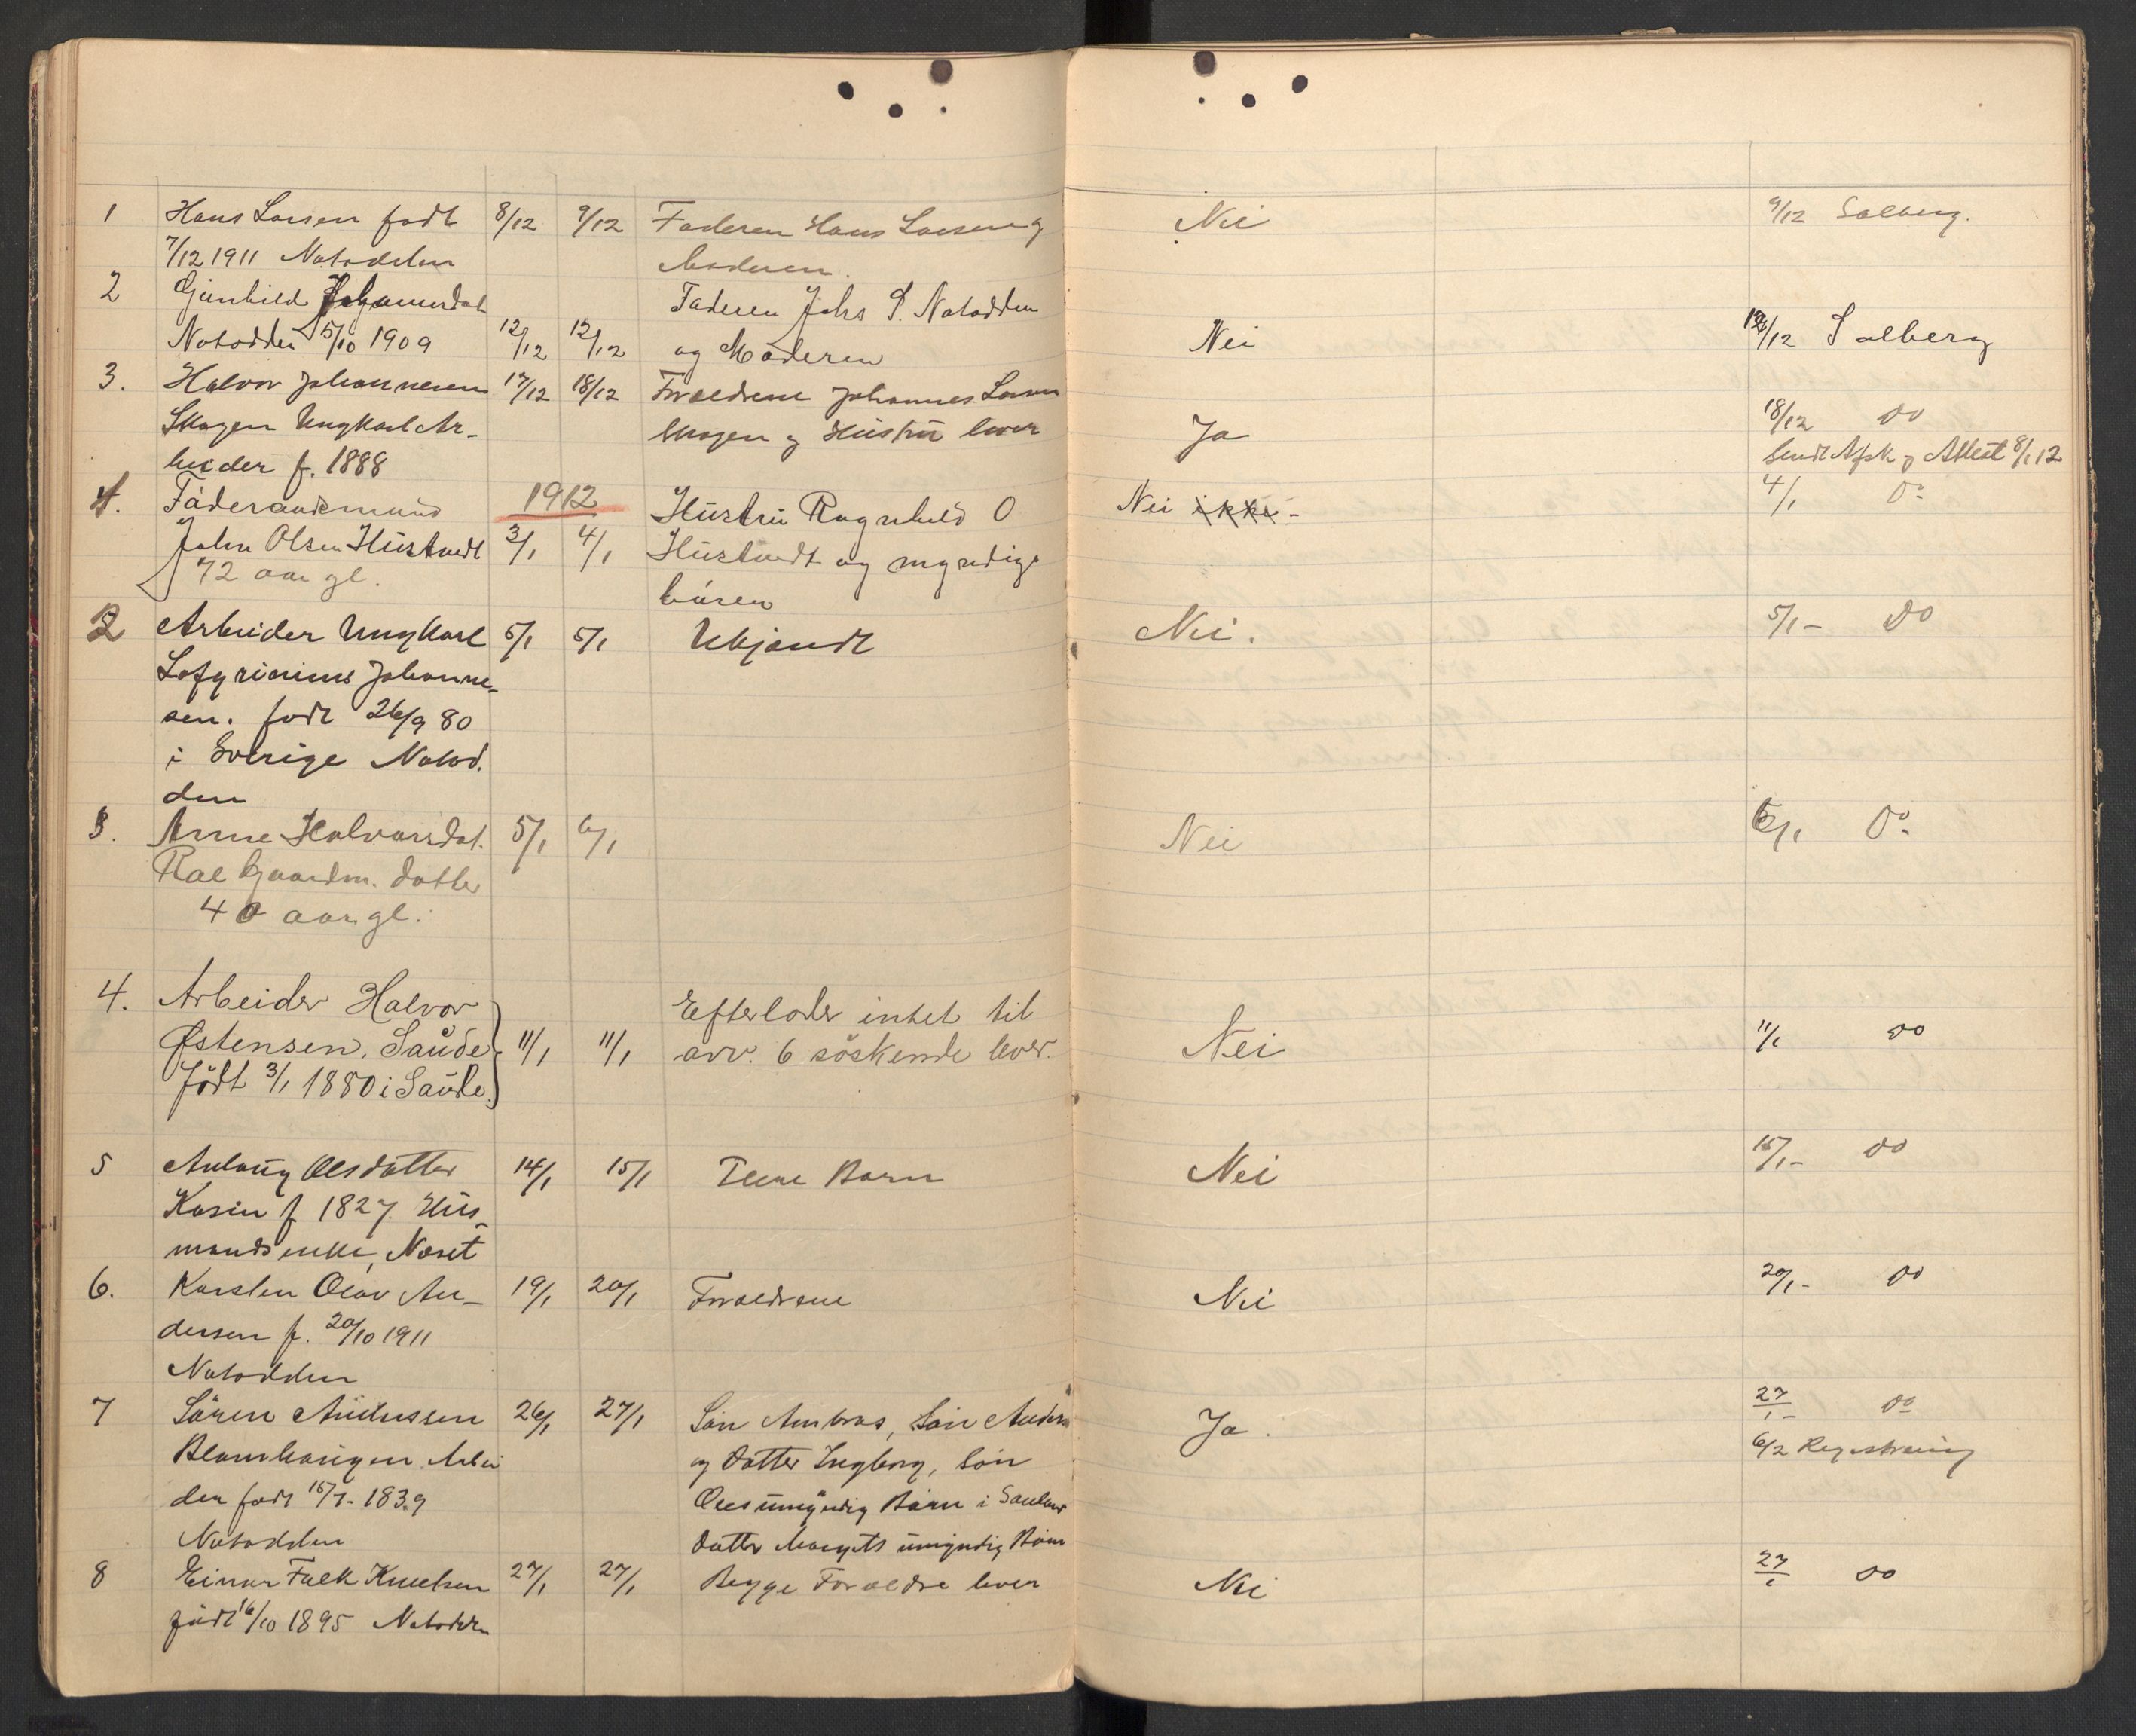 1 Hans Larsen født 8/12 9/12 Faderen Hans Larsen og Nei 9/12 Solberg.
7/12 1911 Notodden Moderen.
2 Gunhild Johannesdat Faderen Johs S. Notodden
Notodden 5/10 1909 12/12 12/12 og Moderen Nei 12/12 Solberg
3. Halvor Johannesen 17/12 18/12 Forældrene Johannes Larsen 18/12 do
Skogen Ungkarl Ar- Skogen og Hustru lever Ja Sendt Afsk og Attest 8/1 12
beider f. 1888
4. Føderaadsmand 1912 Hustru Ragnhild O Nei ikke - 4/1 Do
John Olsen Hustvedt 3/1 4/1 Hustvedt og myndige
72 aar gl. børen
2 Arbeider Ungkarl 5/1 5/1 Ukjendt Nei. 5/1 - Do
Johanne-
sen. født 26/9 80
i Sverige Notod.
den
3. Anne Halvorsdat. 5/1 6/1 Nei 6/1 Do
Gaardm. datter
40 aar gl.
4. Arbeider Halvor Efterlader intet til
Østensen, Saude. 11/1 11/1 arv. 6 søskende lever. Nei 11/1 do
Født 3/1 1880 i Saude.
5 Aslaug Olsdatter 14/1 15/1 Flere Barn Nei 15/1 - do
Kasin f 1827. Hus-
mandsenke, Næset
6. Karsten Olav An- 19/1 20/1 Forældrene Nei 20/1 - do
dersen f. 20/10 1911
Notodden
7 Søren Andersen 26/1 27/1 Søn Ambros, Søn Anders Ja. 27/1 - do
Blomhaugen Arbei og datter Ingborg, Søn 6/2 Registrering
der født 15/7 - 1839 Oles umyndig Børn i Sauland
Notodden datter Margits umyndig Børn
8 Einar Falk Knudsen 27/1 27/1 Begge Forældre lever Nei 27/1 do
født 16/10 1895 Notodden